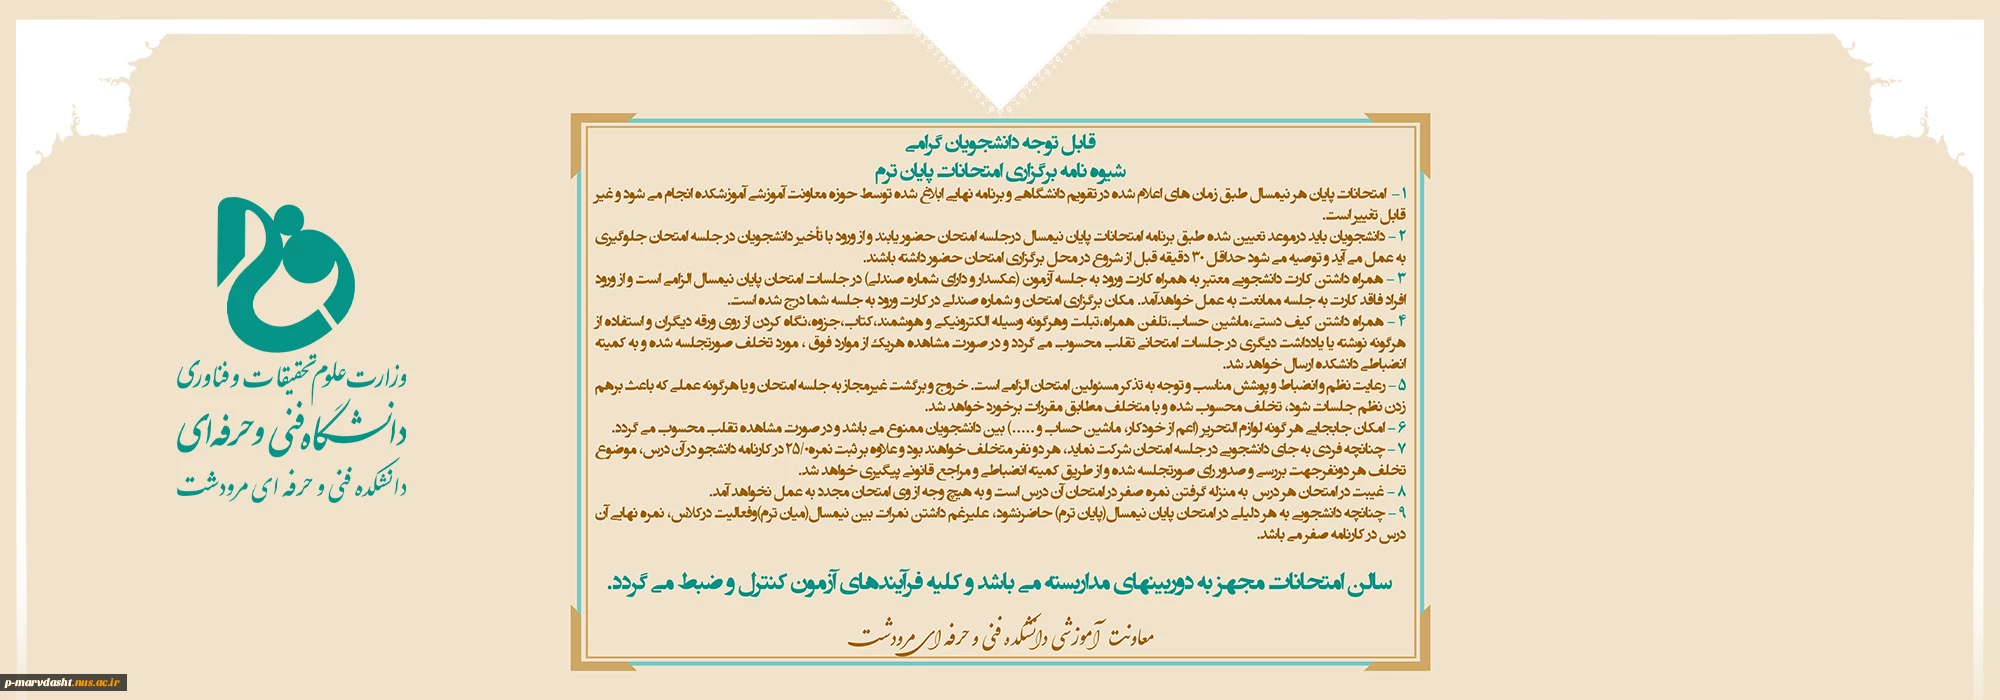 قابل توجه دانشجویان گرامی
شیوه نامه برگزاری امتحانات پایان ترم
۱- امتحانات پایان هر نیمسال طبق زمان های اعلام شده در تقویم دانشگاهی و برنامه نهایی ابلاغ شده توسط حوزه معاونت آموزشی آموزشکده انجام می شود و غیر
قابل تغییر است.
۲- دانشجویان باید درموعد تعیین شده طبق برنامه امتحانات پایان نیمسال درجلسه امتحان حضور یابند و از ورود با تأخیر دانشجویان در جلسه امتحان جلوگیری
به عمل می آید و توصیه می شود حداقل ۳۰ دقیقه قبل از شروع در محل برگزاری امتحان حضور داشته باشند.
۳- همراه داشتن کارت دانشجویی معتبر به همراه کارت ورود به جلسه آزمون (عکسدار و دارای شماره صندلی) در جلسات امتحان پایان نیمسال الزامی است و از ورود
افراد فاقد کارت به جلسه ممانعت به عمل خواهدآمد. مکان برگزاری امتحان و شماره صندلی در کارت ورود به جلسه شما درج شده است.
۴- همراه داشتن کیف دستی،ماشین حساب،تلفن همراه،تبلت وهرگونه وسیله الکترونیکی و هوشمند،کتاب،جزوه،نگاه کردن از روی ورقه دیگران و استفاده از
هرگونه نوشته یا یادداشت دیگری در جلسات امتحانی تقلب محسوب می گردد و در صورت مشاهده هریک از موارد فوق ، مورد تخلف صورتجلسه شده و به کمیته
انضباطی دانشکده ارسال خواهد شد.
۵- رعایت نظم و انضباط و پوشش مناسب و توجه به تذکر مسئولین امتحان الزامی است. خروج و برگشت غیرمجاز به جلسه امتحان و یا هرگونه عملی که باعث برهم
زدن نظم جلسات شود، تخلف محسوب شده و با متخلف مطابق مقررات برخورد خواهد شد.
۶- امکان جابجایی هر گونه لوازم التحریر (اعم از خودکار، ماشین حساب و .....) بین دانشجویان ممنوع می باشد و در صورت مشاهده تقلب محسوب می گردد.
۷- چنانچه فردی به جای دانشجویی در جلسه امتحان شرکت نماید، هر دو نفر متخلف خواهند بود و علاوه بر ثبت نمره ۲۵/۰ در کارنامه دانشجو در آن درس، موضوع
تخلف هر دونفرجهت بررسی و صدور رای صورتجلسه شده و از طریق کمیته انضباطی و مراجع قانونی پیگیری خواهد شد.
۸- غیبت در امتحان هر درس به منزله گرفتن نمره صفر در امتحان آن درس است و به هیچ وجه از وی امتحان مجدد به عمل نخواهد آمد.
۹- چنانچه دانشجویی به هر دلیلی در امتحان پایان نیمسال(پایان ترم) حاضرنشود، علیرغم داشتن نمرات بین نیمسال(میان ترم)وفعالیت درکلاس، نمره نهایی آن
درس در کارنامه صفر می باشد.
سالن امتحانات مجهز به دوربینهای مداربسته می باشد و کلیه فرآیندهای آزمون کنترل و ضبط می گردد.
معاونت آموزشی دانشکده فنی و حرفه ای مرودشت
وزارت علوم تحقیقات و فناوری
دانشگاه فنی و حرفه ای
دانشکده فنی و حرفه ای مرودشت
p-marvdasht.nus.ac.ir